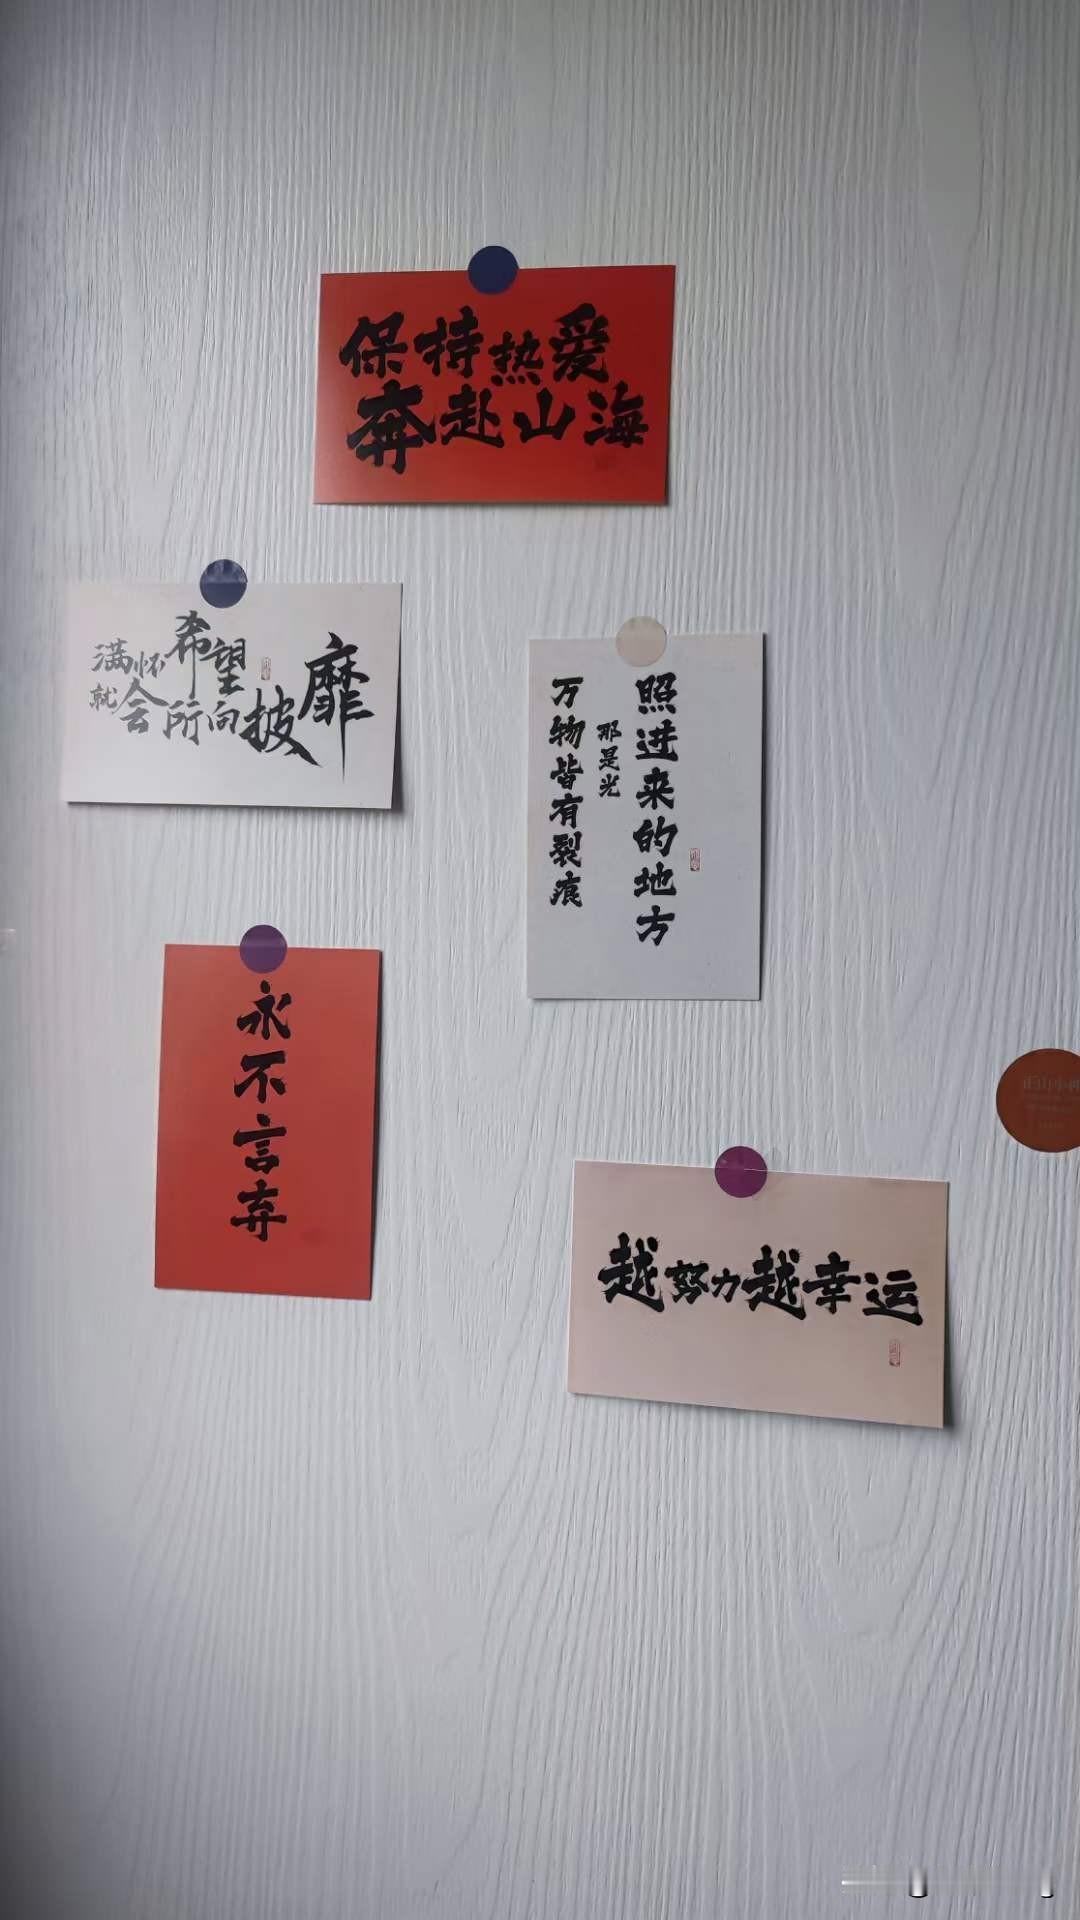 保持热爱
奔赴山海
满怀希望
就会所向披靡
万物皆有裂痕
那是光
照进来的地方
永不言弃
越努力越幸运
正山小种